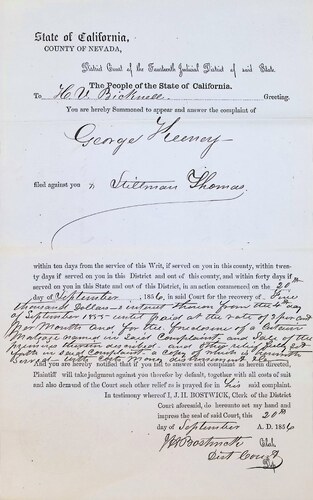 State of California,
COUNTY OF NEVADA,
District Court of the Fourteenth Judicial District of said State.
The People of the State of California.
To H. V. Bicknell Greeting.
You are hereby Summoned to appear and answer the complaint of
George Keeney
filed against you &
Stillman Thomas
within ten days from the service of this Writ, if served on you in this county, within twen-
ty days if served on you in this District and out of this county, and within forty days if
served on you in this State and out of this District, in an action commenced on the 20th
day of September 1856, in said Court for the recovery of Five
thousand Dollars interest thereon from the 4 day
of September 1855 until paid at the rate of 3 per cent
per Month and for the foreclosure of a certain
Mortgage named in said Complaint and Sale of the
premises therein described. and other as fully set
forth in said Complaint, a copy of which is herewith
Served with cost money
And you are hereby notified that if you fail to answer said complaint as herein directed,
Plaintiff will take judgment against you therefor by default, together with all costs of suit
and also demand of the Court such other relief as is prayed for in his said complaint.
In testimony whereof I, J. H. BOSTWICK, Clerk of the District
Court aforesaid, do hereunto set my hand and
impress the seal of said Court, this 20th
day of September A.D. 1856
J H Bostwick Clerk,
Dist Court